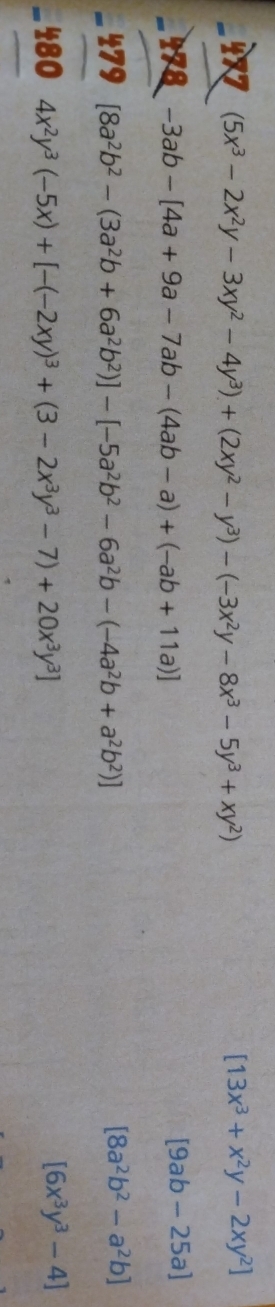 477 (5x³ – 2x²y – 3xy² – 4y³) + (2xy² – y³) – (–3x²y – 8x³ – 5y³ + xy²) [13x³ + x²y – 2xy²]
478 –3ab – [4a + 9a – 7ab – (4ab – a) + (–ab + 11a)] [9ab – 25a]
479 [8a²b² – (3a²b + 6a²b²)] – [–5a²b² – 6a²b – (–4a²b + a²b²)] [8a²b² – a²b]
480 4x²y³ (–5x) + [–(–2xy)³ + (3 – 2x³y³ – 7) + 20x³y³] [6x³y³ – 4]